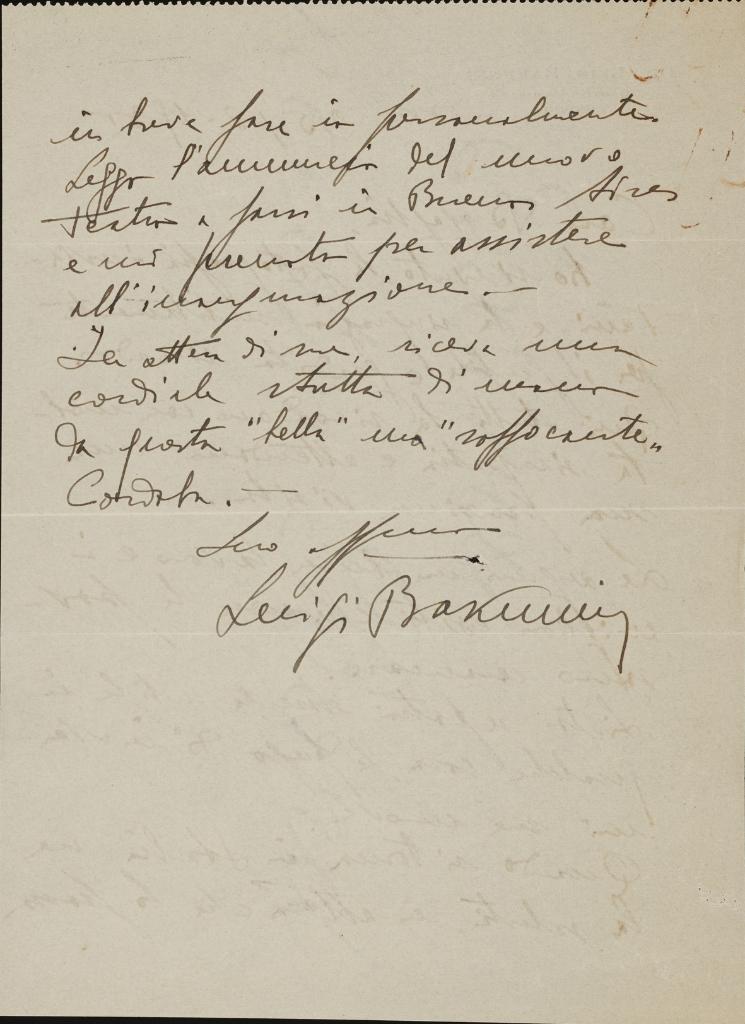 in breve fare io personalmente.
Leggo l'annuncio del nuovo
teatro a farsi in Buenos Aires
e mi prenoto per assistere
all'inaugurazione. —
In attesa di me, riceva una
cordiale stretta di mano
da questa "bella" ma "soffocante"
Cordoba. —
Suo affmo
Luigi